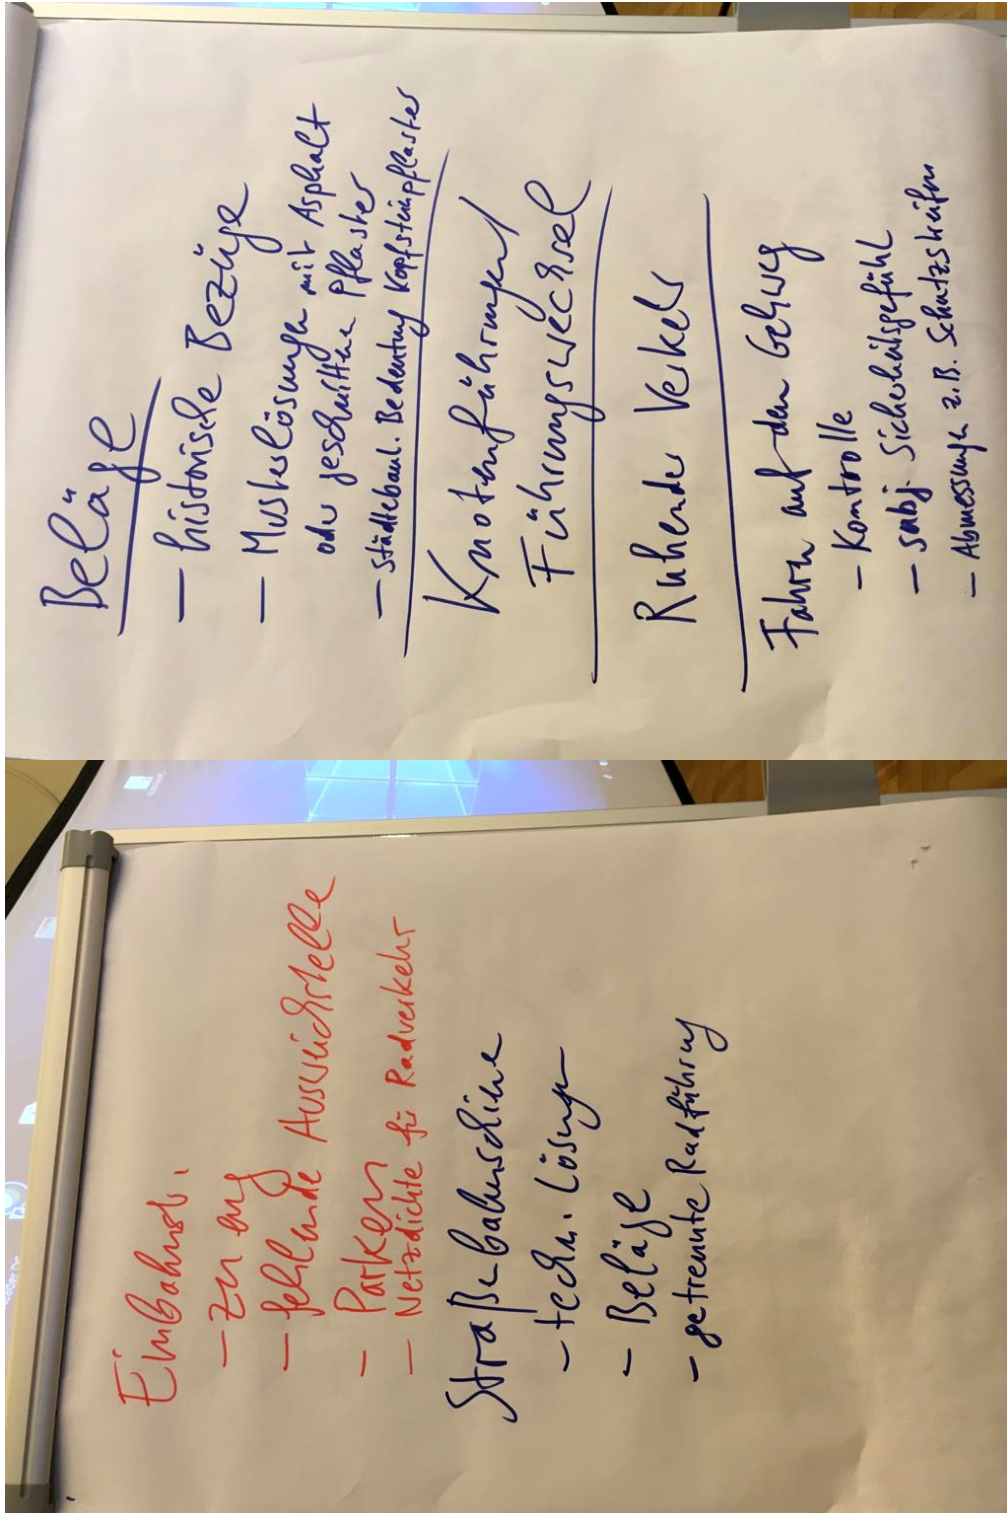 Beläge
- historische Bezüge
- Musterlösungen mit Asphalt
oder geschnittene Pflaster
- städtebaul. Bedeutung Kopfsteinpflaster
Knotenführungen/
Führungswechsel
Ruhender Verkehr
Fahren auf den Gehweg
- Kontrolle
- subj. Sicherheitsgefühl
- Abmessungen z.B. Schutzstreifen
Einbahnst.
- zu eng
- fehlende Ausweichstelle
- Parken
- Netzdichte für Radverkehr
Straßebahnschiene
- techn. Lösungen
- Beläge
- getrennte Radführung